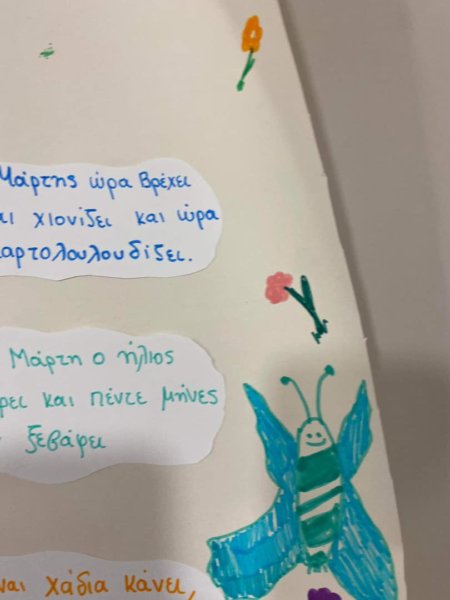 Μάρτης ώρα βρέχει
αι χιονίζει και ώρα
αρτολουλουδίζει.
Μάρτη ο ήλιος
ρει και πέντε μήνες
ξεβάφει
ναι χάδια κάνει,